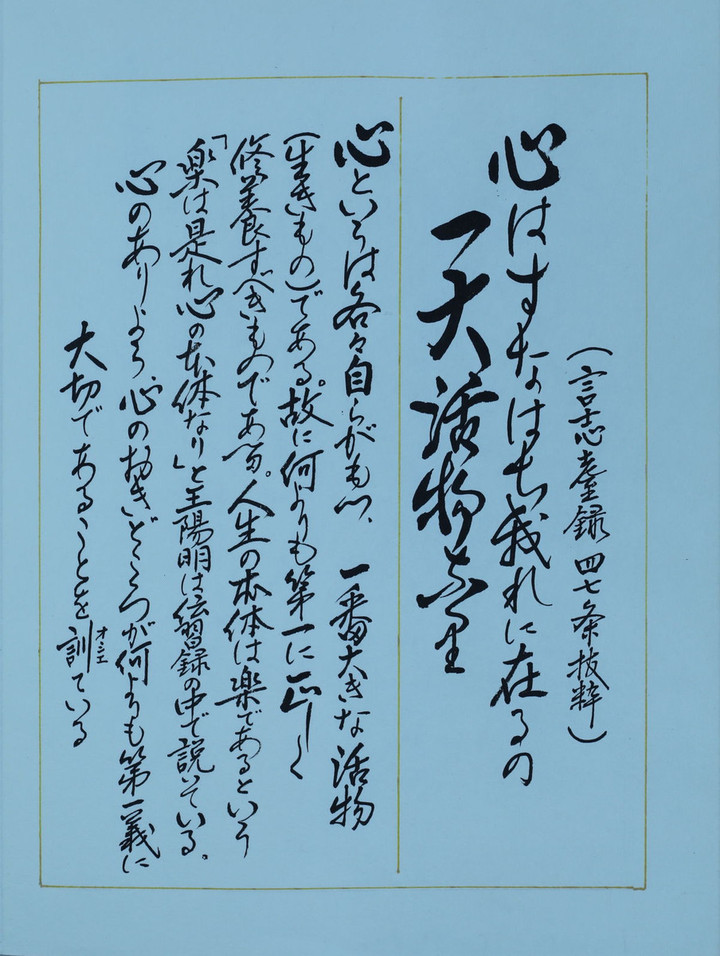 心はすなはち我れに在るの
一大活物なり
(言志耋録 四七条抜粋)
心というは各々自らがもつ、一番大きな活物
(生きもの)である。故に何よりも第一に正しく
修養すべきものである。人生の本体は楽であるという
「楽は是れ心の本体なり」と王陽明は伝習録の中で説いている。
心のありよう、心の抱きどころが何よりも第一義に
大切であることを訓ている
オシエ